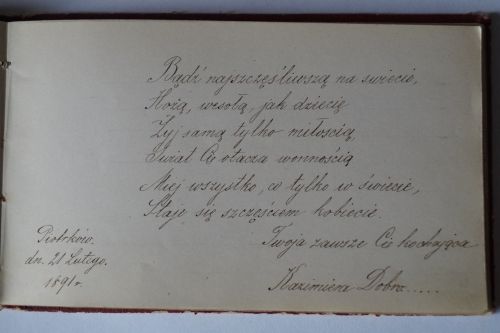 Bądź najszczęśliwszą na świecie,
Hożą, wesołą, jak dziecię
Żyj samą tylko miłością,
Świat Cię otacza wonnością
Miej wszystko, co tylko w świecie,
Staje się szczęściem kobiecie.
Twoja zawsze Cię kochająca
Kazimiera Dobrz.....
Piotrków.
dn. 21 Lutego.
1891 r.